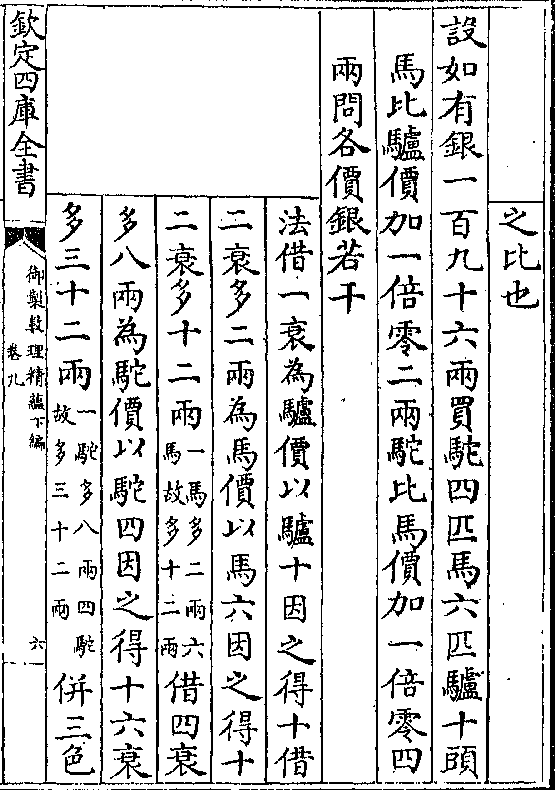 之比也
設如有銀一百九十六兩買駝四匹馬六匹驢十頭
馬比驢價加一倍零二兩駝比馬價加一倍零四
兩問各價銀若干
法借一衰為驢價以驢十因之得十借
二衰多二兩為馬價以馬六因之得十
二衰多十二兩一馬多二兩六馬故多十二兩借四衰
多八兩為駝價以駝四因之得十六衰
多三十二兩一駝多八兩四駝故多三十二兩併三色
欽定四庫全書
御製數理精蘊下編
卷九
六